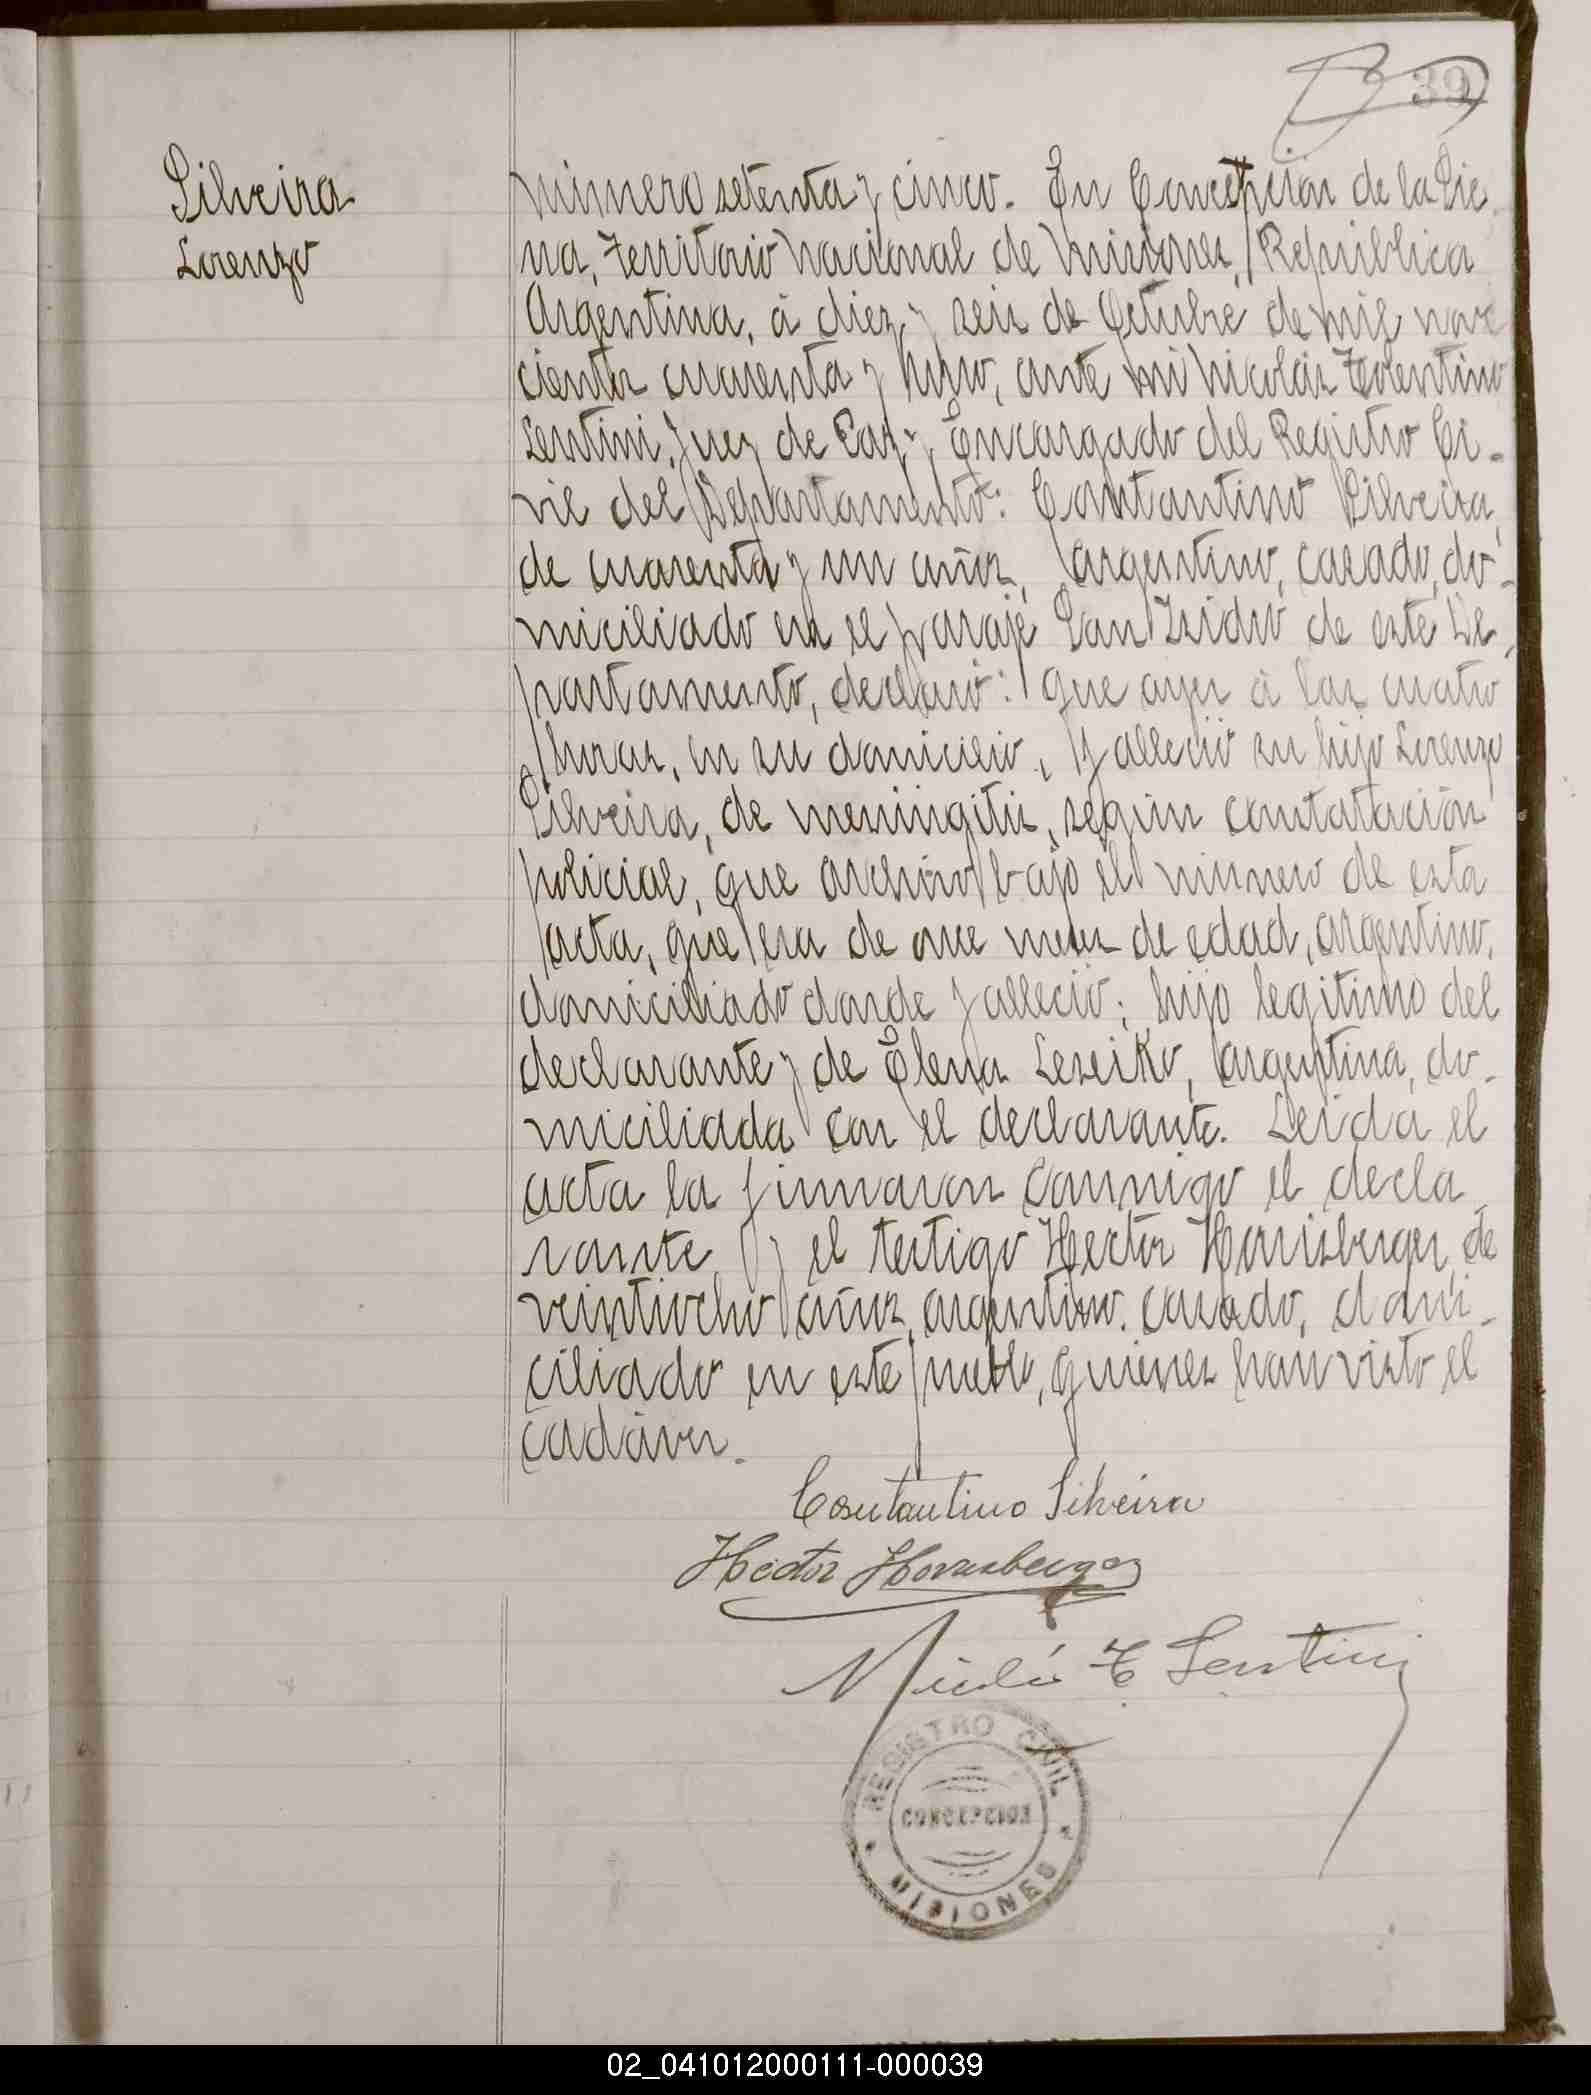 39
Silveira
Lorenzo
Número setenta y cinco. En Concepción de la Sie-
rra, Territorio Nacional de Misiones, República
Argentina, á diez y seis de Octubre de mil nove
cientos cuarenta y uno, ante mi Nicolás Tolentino
Sentini, Juez de Paz y Encargado del Registro Ci-
vil del Departamento: Constantino Silveira,
de cuarenta y un años, argentino, casado, do-
miciliado en el paraje San Isidro de este De-
partamento, declaró: que ayer á las cuatro
horas, en su domicilio, falleció su hijo Lorenzo
Silveira, de meningitis, según constatación
policial, que archivo bajo el número de esta
acta, que era de once meses de edad, argentino,
domiciliado donde falleció; hijo legitimo del
declarante y de Elena Leseiko, argentina, do-
miciliada con el declarante. Leída el
acta la firmaron conmigo el decla
rante y el testigo Hector Horrisberger, de
veintiocho años, argentino, casado, domi-
ciliado en este pueblo, quienes han visto el
cadáver.
Constantino Silveira
Hector Horrisberger
Nicolás T. Sentini
REGISTRO CIVIL
CONCEPCION
MISIONES
02_041012000111-000039